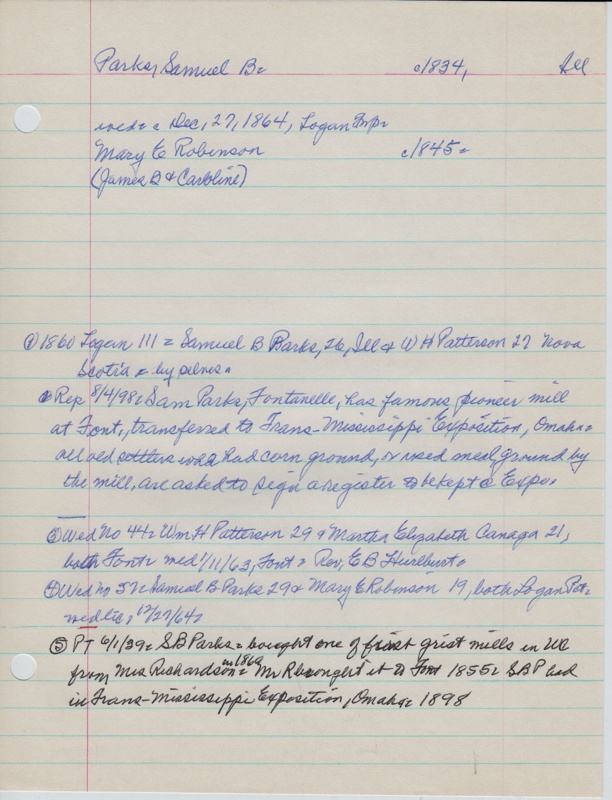 Parks, Samuel B. c1834, Ill
wed = Dec. 27, 1864, Logan Twp.
Mary E Robinson c1845 =
(James B & Caroline)
① 1860 Logan 111 = Samuel B Parks, 26, Ill & W H Patterson 27 Nova
Scotia = by selves =
② Rep 8/4/98 = Sam Parks, Fontanelle, has famous pioneer mill
at Font., transferred to Trans-Mississippi Exposition, Omaha =
all old settlers who had corn ground, or used meal ground by
the mill, are asked to sign a register to be kept @ Expo.
③ Wed No 44 = Wm H Patterson 29 & Martha Elizabeth Canaga 21,
both Font = wed 1/11/63, Font = Rev, E B Hurlburt =
④ Wed no 57 = Samuel B Parks 29 & Mary E Robinson 19, both Logan Pct =
wed lic, 12/27/64 =
⑤ PT 6/1/39 = S B Parks = bought one of first grist mills in WC
from Mrs Richardson in 1862 = Mr R brought it to Font 1855 = SBP had
in Trans-Mississippi Exposition, Omaha = 1898